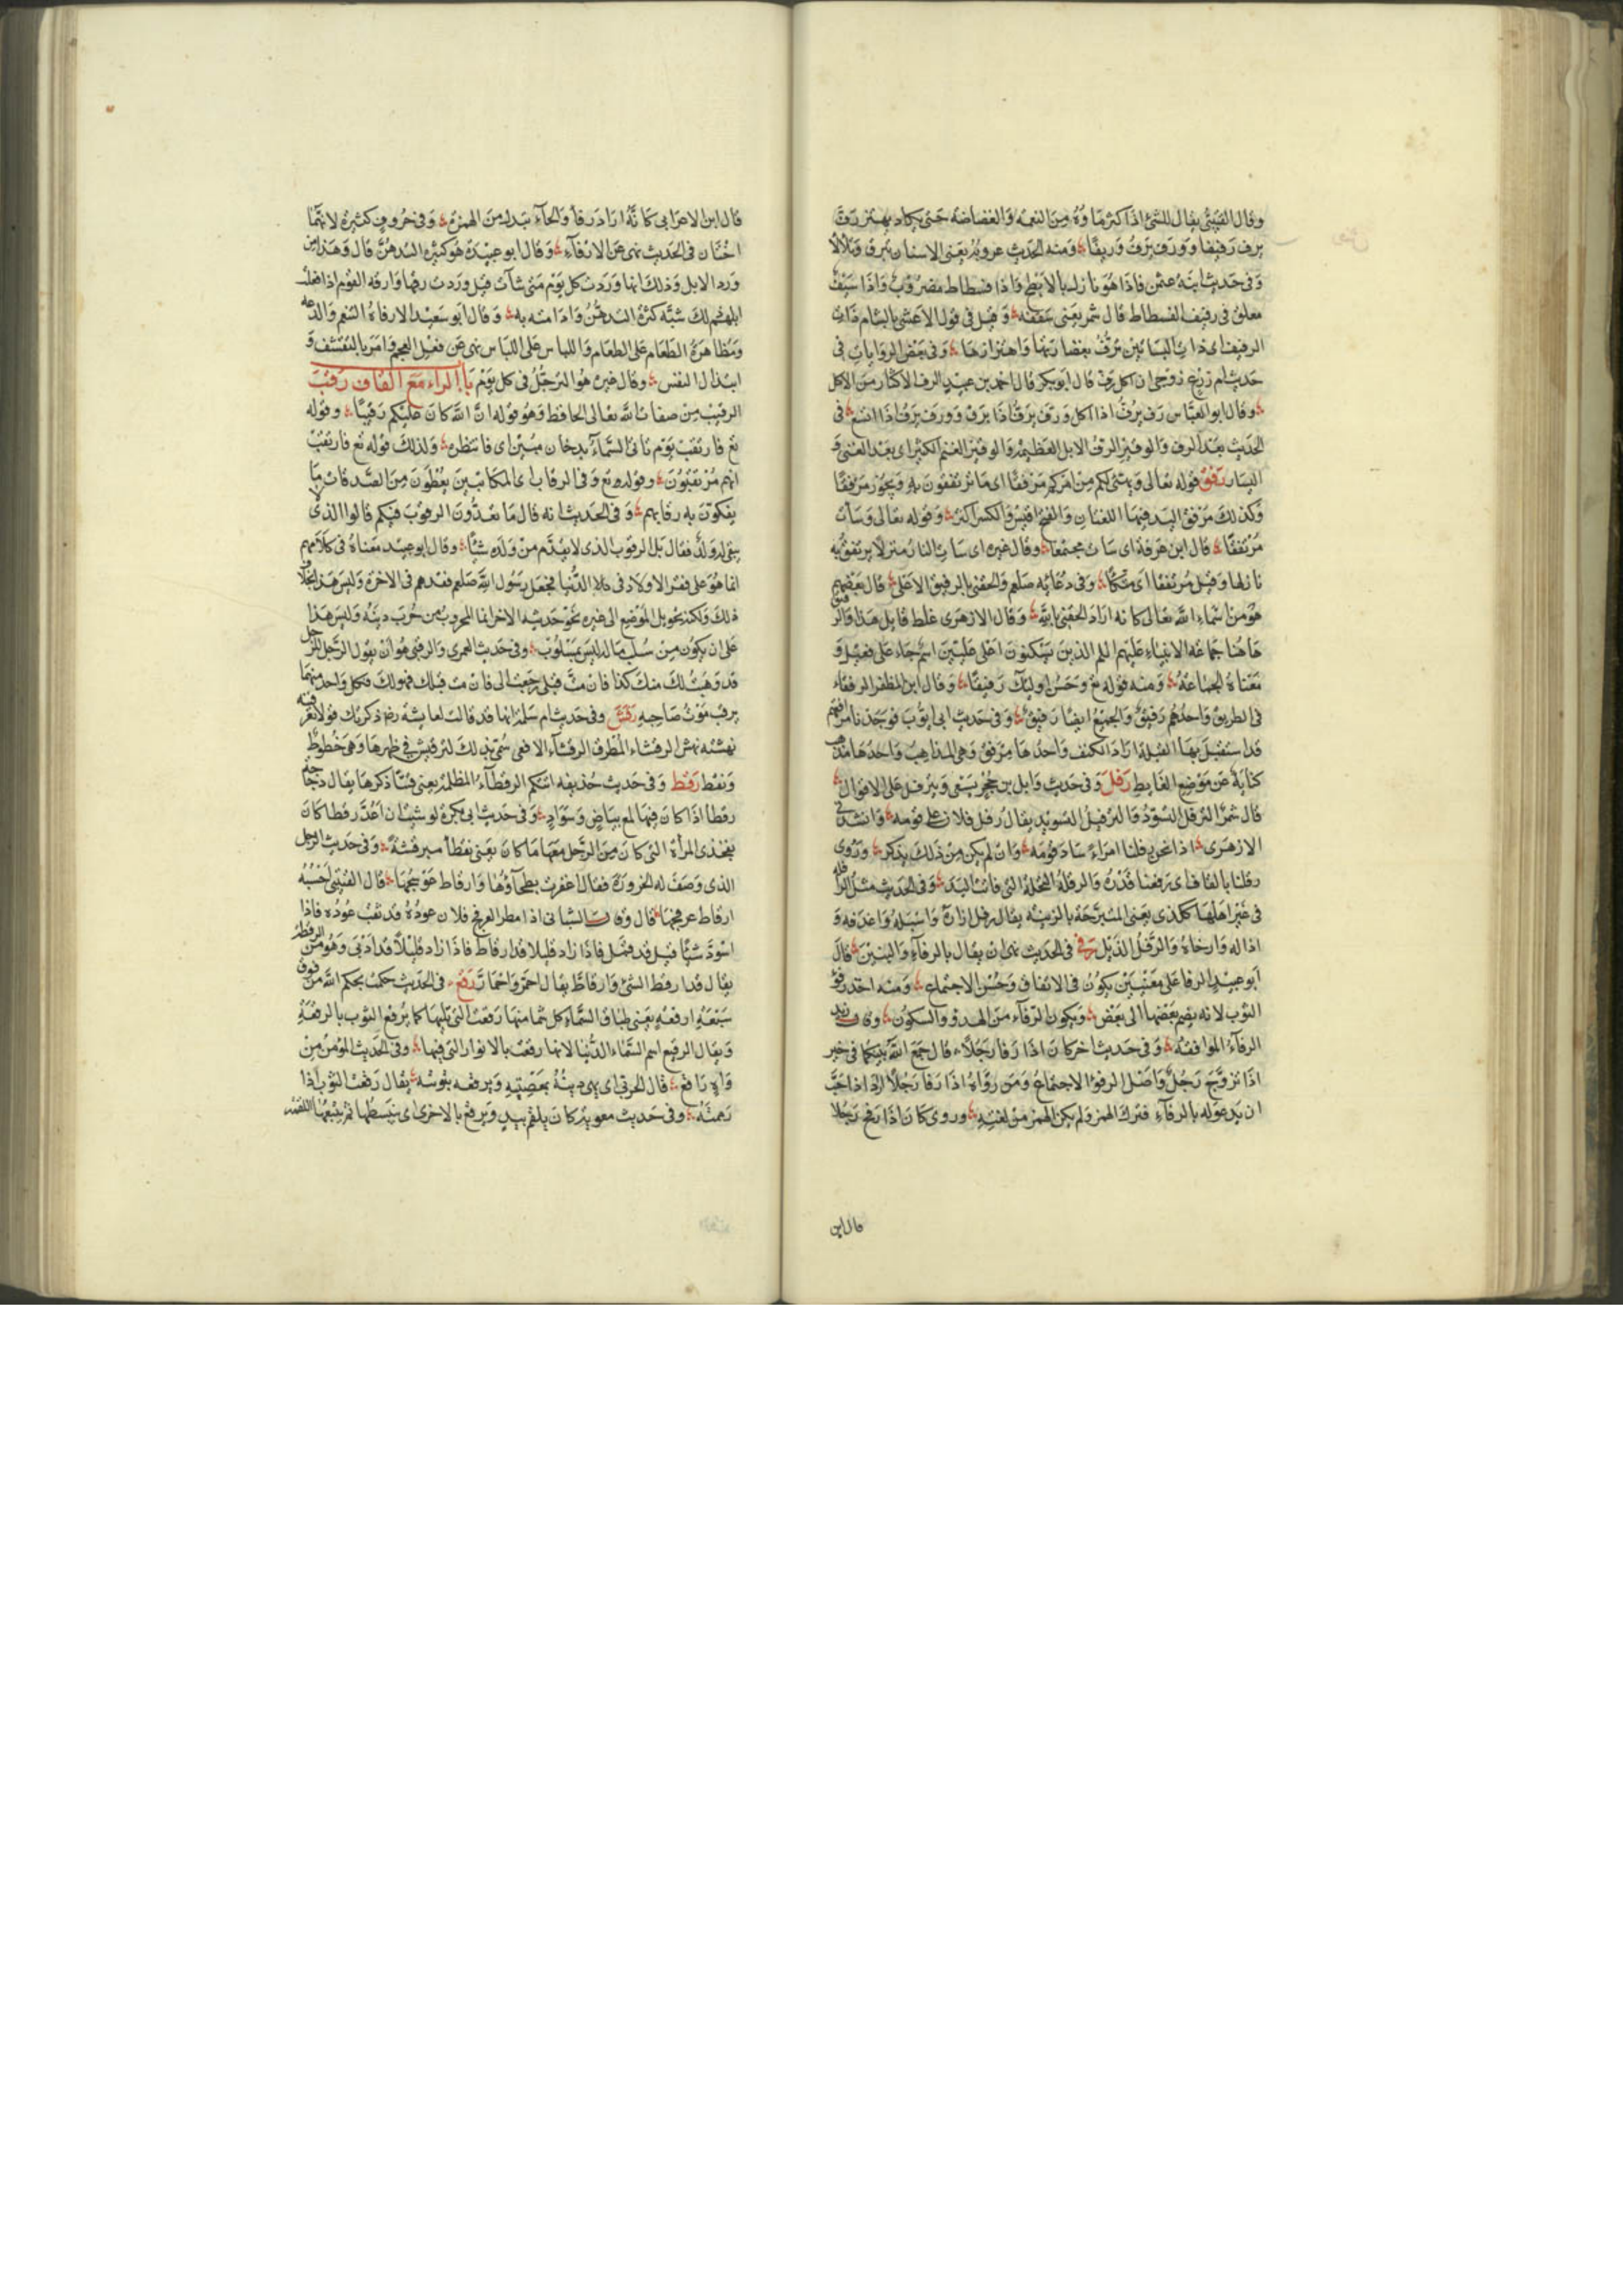 وقال القتيبي يقال للشئ اذا كثر ماؤه من النعمه والغضاضه حتى يكاد يهتز رف
يرف رفيفا وورف يرف وريفا ومنه الحديث عرويه يعنى الاسنان تبرق وتلألأ
وفى حديث ابنة عثمن فاذا هو نازل بالابطح واذا فسطاط مضروب واذا سيف
معلق فى رفيف الفسطاط قال شمر يعنى سقفه وقيل فى قول الاعشى بالشام ذات
الرفيف اى ذات البساتين ترف بغضارتها واهتزازها وفى بعض الروايات فى
حديث ام زرع زوجى ان اكل رف قال ابو بكر قال احمد بن عبيد الرف الاكثار من الاكل
وقال ابو العباس رف يرف اذا اكل ورف يرف اذا برق وورف يرف اذا اتسع فى
الحديث بعد الرف والوقير الرف الابل العظيمة والوقير الغنم الكثير اى بعد الغنى و
اليسار رفق قوله تعالى ويهيئ لكم من امركم مرفقا اى ما ترتفقون به ويجوز مرفقا
وكذلك مرفق اليد فيهما اللغتان والفتح اقيس والكسر اكثر وقوله تعالى وساءت
مرتفقا قال ابن عرفة اى ساءت مجتمعا وقال غيره اى ساءت النار منزلا يرتفق به
نازلها وقيل مرتفقا اى متكأ وفى دعائه صلعم والحقنى بالرفيق الاعلى قال بعضهم
هو من اسماء الله تعالى كانه اراد الحقنى بالله وقال الازهرى غلط قايل هذا والرفيق
هاهنا جماعه الانبياء عليهم السلم الذين يسكنون اعلى عليين اسم جاء على فعيل و
معناه الجماعة ومنه قوله تع وحسن اوليك رفيقا وقال ابن المظفر الرفقاء
فى الطريق واحدهم رفيق والجميع ايضا رفيق وفى حديث ابى ايوب فوجدنا مرافقهم
قد استقبل بها القبلة اراد الكنف واحدها مرفق وهى المذاهب واحدها مذهب
كناية عن موضع الغايط رفل وفى حديث وايل بن حجر يسعى ويترفل على الاقوال
قال شمر الترفل التسود والترفيل التسويد يقال رفل فلان على قومه وانشدنى
الازهرى اذا نحن رفلنا امراء ساد قومه وان لم يكن من ذلك يذكر وروى
رقلنا بالقاف اى رفعنا قدره والرقلة النخلة التى فاتت اليد وفى الحديث مثل الرافله
فى غير اهلها كالذى يعنى المتبرجة بالزينه يقال رفل ازاره واسبله واغدفه و
اذاله وارخاه والرفل الذيل رفى فى الحديث نهى ان يقال بالرفاء والبنين قال
ابو عبيد الرفا على معنيين يكون فى الاتفاق وحسن الاجتماع ومنه اخذ رفؤ
الثوب لانه يضم بعضها الى بعض ويكون الرفاء من الهدؤ والسكون وقال ابو زيد
الرفآء الموافقة وفى حديث اخر كان اذا رفا رجلا قال جمع الله بينكما فى خير
اذا تزوج رجل واصل الرفو الاجتماع ومن رواه اذا رفا رجلا اراد اذا احب
ان يدعو له بالرفآء فترك الهمز ولم يكن الهمز من لغته وروى كان اذا رفح رجلا
قال ابن
قال ابن الاعرابى كانه اراد رفأ والحآء تبدل من الهمزة وفى حروف كثيرة لانهما
اختان فى الحديث نهى عن الارفآء وقال ابو عبيدة هو كثرة التدهن قال وهذا من
ورد الابل وذلك انها وردت كل يوم متى شآت قيل وردت رفها وارفه القوم اذا فعلت
ابلهم ذلك شبه كثرة التدهن وادامته به وقال ابو سعيد الارفاه التنعم والدعه
ومظاهرة الطعام على الطعام واللباس على اللباس نهى عن فعل العجم وامر بالتقشف و
ابتذال النفس وقال غيره هو الترجل فى كل يوم باب الراء مع القاف رقب
الرقيب من صفات الله تعالى الحافظ وهو قوله ان الله كان عليكم رقيبا وقوله
تع فارتقب يوم تاتى السماء بدخان مبين اى فانتظره ولذلك قوله تع فارتقب
انهم مرتقبون وقوله تع وفى الرقاب اى المكاتبين يعطون من الصدقات ما
يفكون به رقابهم وفى الحديث انه قال ما تعدون الرقوب فيكم قالوا الذى
يبقى له ولد فقال بل الرقوب الذى لا يقدم من ولده شئا وقال ابو عبيد معناه فى كلامهم
انما هو على فقد الاولاد فى دار الدنيا فجعل رسول الله صلعم فقدهم فى الاخرة وليس هذا بخلاف
ذلك ولكنه تحويل الموضع الى غيره نحو حديثه الاخر انما المحروب من حرب دينه وليس هذا
على ان يكون من سلب ماله ليس بمسلوب وفى حديث العمرى والرقبى هو ان يقول الرجل للرجل
قد وهبت لك منك كذا فان مت قبلى رجعت الى فان مت قبلك فهو لك فكل واحد منهما
يرقب موت صاحبه رقش وفى حديث ام سلمة انها قد قالت لعايشة رضع ذكرتك قولا تعرفينه
نهشته نهش الرقشاء المطرق الرقشآء الافعى سميت بذلك لترقيش فى ظهرها وهى خطوط
ونقط رقط وفى حديث حذيفه اتتكم الرقطآء المظلمة يعنى فتنا ذكرها يقال دجاجة
رقطا اذا كان فيها لمع بياض وسواد وفى حديث ابى بكرة لو شئت ان اعد رقطا كان
بفخذى المرأة التى كان من الرجل معها ما كان يعنى نقطا مبرقشة وفى حديث الرجل
الذى وصف له الخرورة فقال اغفرت بطحآؤها وارقاط عوسجها قال القتيبى احسبه
ارقاط عرفجها قال وقالت الشبانى اذا مطر العرفج فلان عوده قد ثقب عوده فاذا
اسود شئا قيل قد قمل فاذا زاد قليلا قد ارقاط فاذا زاد قليلا قد ادبى وهو من الرقطة
يقال قد ارقط الشئ وارقاط يقال احمر واحمار رقع فى الحديث حكمت بحكم الله من فوق
سبعة ارقعة يعنى طباق السمآء كل سما منها رقعت التى تليها كما يرقع الثوب بالرقعة
ويقال الرقيع اسم السماء الدنيا لانها رقعت بالانوار التى فيها وفى الحديث المؤمن من
واه راقع قال الحربى اى يهى دينه بمعصيته ويرقعه بتوبته يقال رقعت الثوب اذا
رممته وفى حديث معوية كان يلقم بيد ويرقع بالاخرى اى يبسطها ثم يتبعها اللقمة